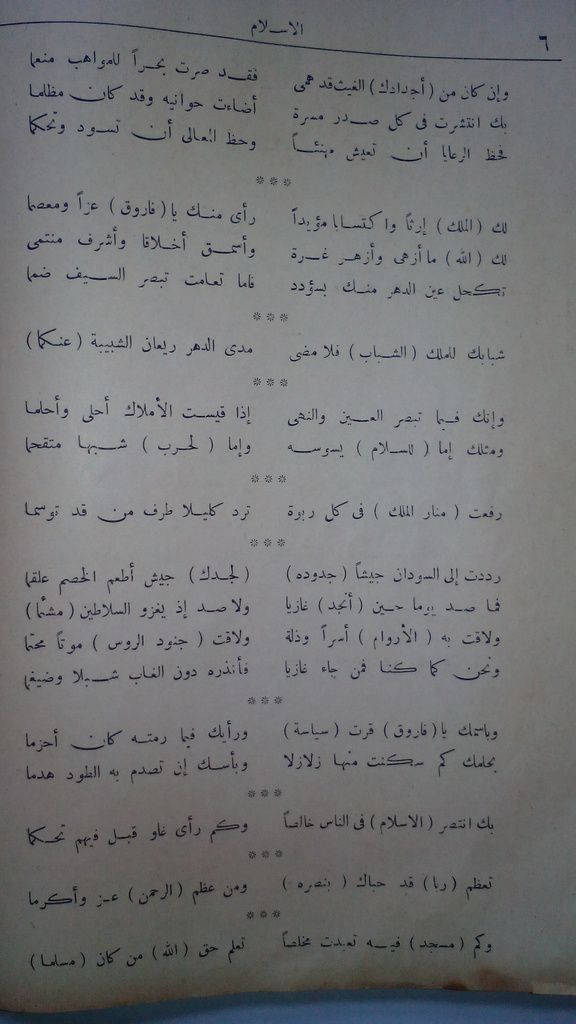 ٦
الاسلام
وإن كان من (أجدادك) الغيث قد همى فقد صرت بحراً للمواهب منعما
بك انتشرت فى كل صدر مسرة أضاءت حوانيه وقد كان مظلما
فحظ الرعايا أن تعيش مهنئاً وحظ المعالى أن تسود وتحكما
***
لك (الملك) إرثاً واكتسابا مؤيداً رأى منك يا (فاروق) عزاً ومعصما
لك (الله) ما أزهى وأزهر غرة وأسمق أخلاقا وأشرف منتمى
تكحل عين الدهر منك بسؤدد فاما تعامت تبصر السيف ضما
***
شبابك للملك (الشباب) فلا مضى مدى الدهر ريعان الشبيبة (عنكما)
***
وإنك فيما تبصر العين والنهى إذا قيست الأملاك أحلى وأحلما
ومثلك إما (للسلام) يسوسه وإما (لحرب) شبها متقحما
***
رفعت (منار الملك) فى كل ربوة ترد كليلا طرف من قد توسما
***
رددت إلى السودان جيشاً (جدوده) (لجدك) جيش أطعم الخصم علقما
فما صد يوما حين (أنجد) غازيا ولا صد إذ يغزو السلاطين (مشئما)
ولاقت به (الأروام) أسراً وذلة ولاقت (جنود الروس) موتاً محتما
ونحن كما كنا فمن جاء غازيا فأنذره دون الغاب شبلا وضيغما
***
وباسمك يا (فاروق) قرت (سياسة) ورأيك فيما رمته كان أحزما
بحلمك كم سكنت منها زلازلا وبأسك إن تصدم به الطود هدما
***
بك انتصر (الاسلام) فى الناس خالصاً وكم رأى غاو قبل فيهم تحكما
***
تعظم (ربا) قد حباك (بنصره) ومن عظم (الرحمن) عز وأكرما
***
وكم (مسجد) فيه تعبدت مخلصاً تعلم حق (الله) من كان (مسلما)